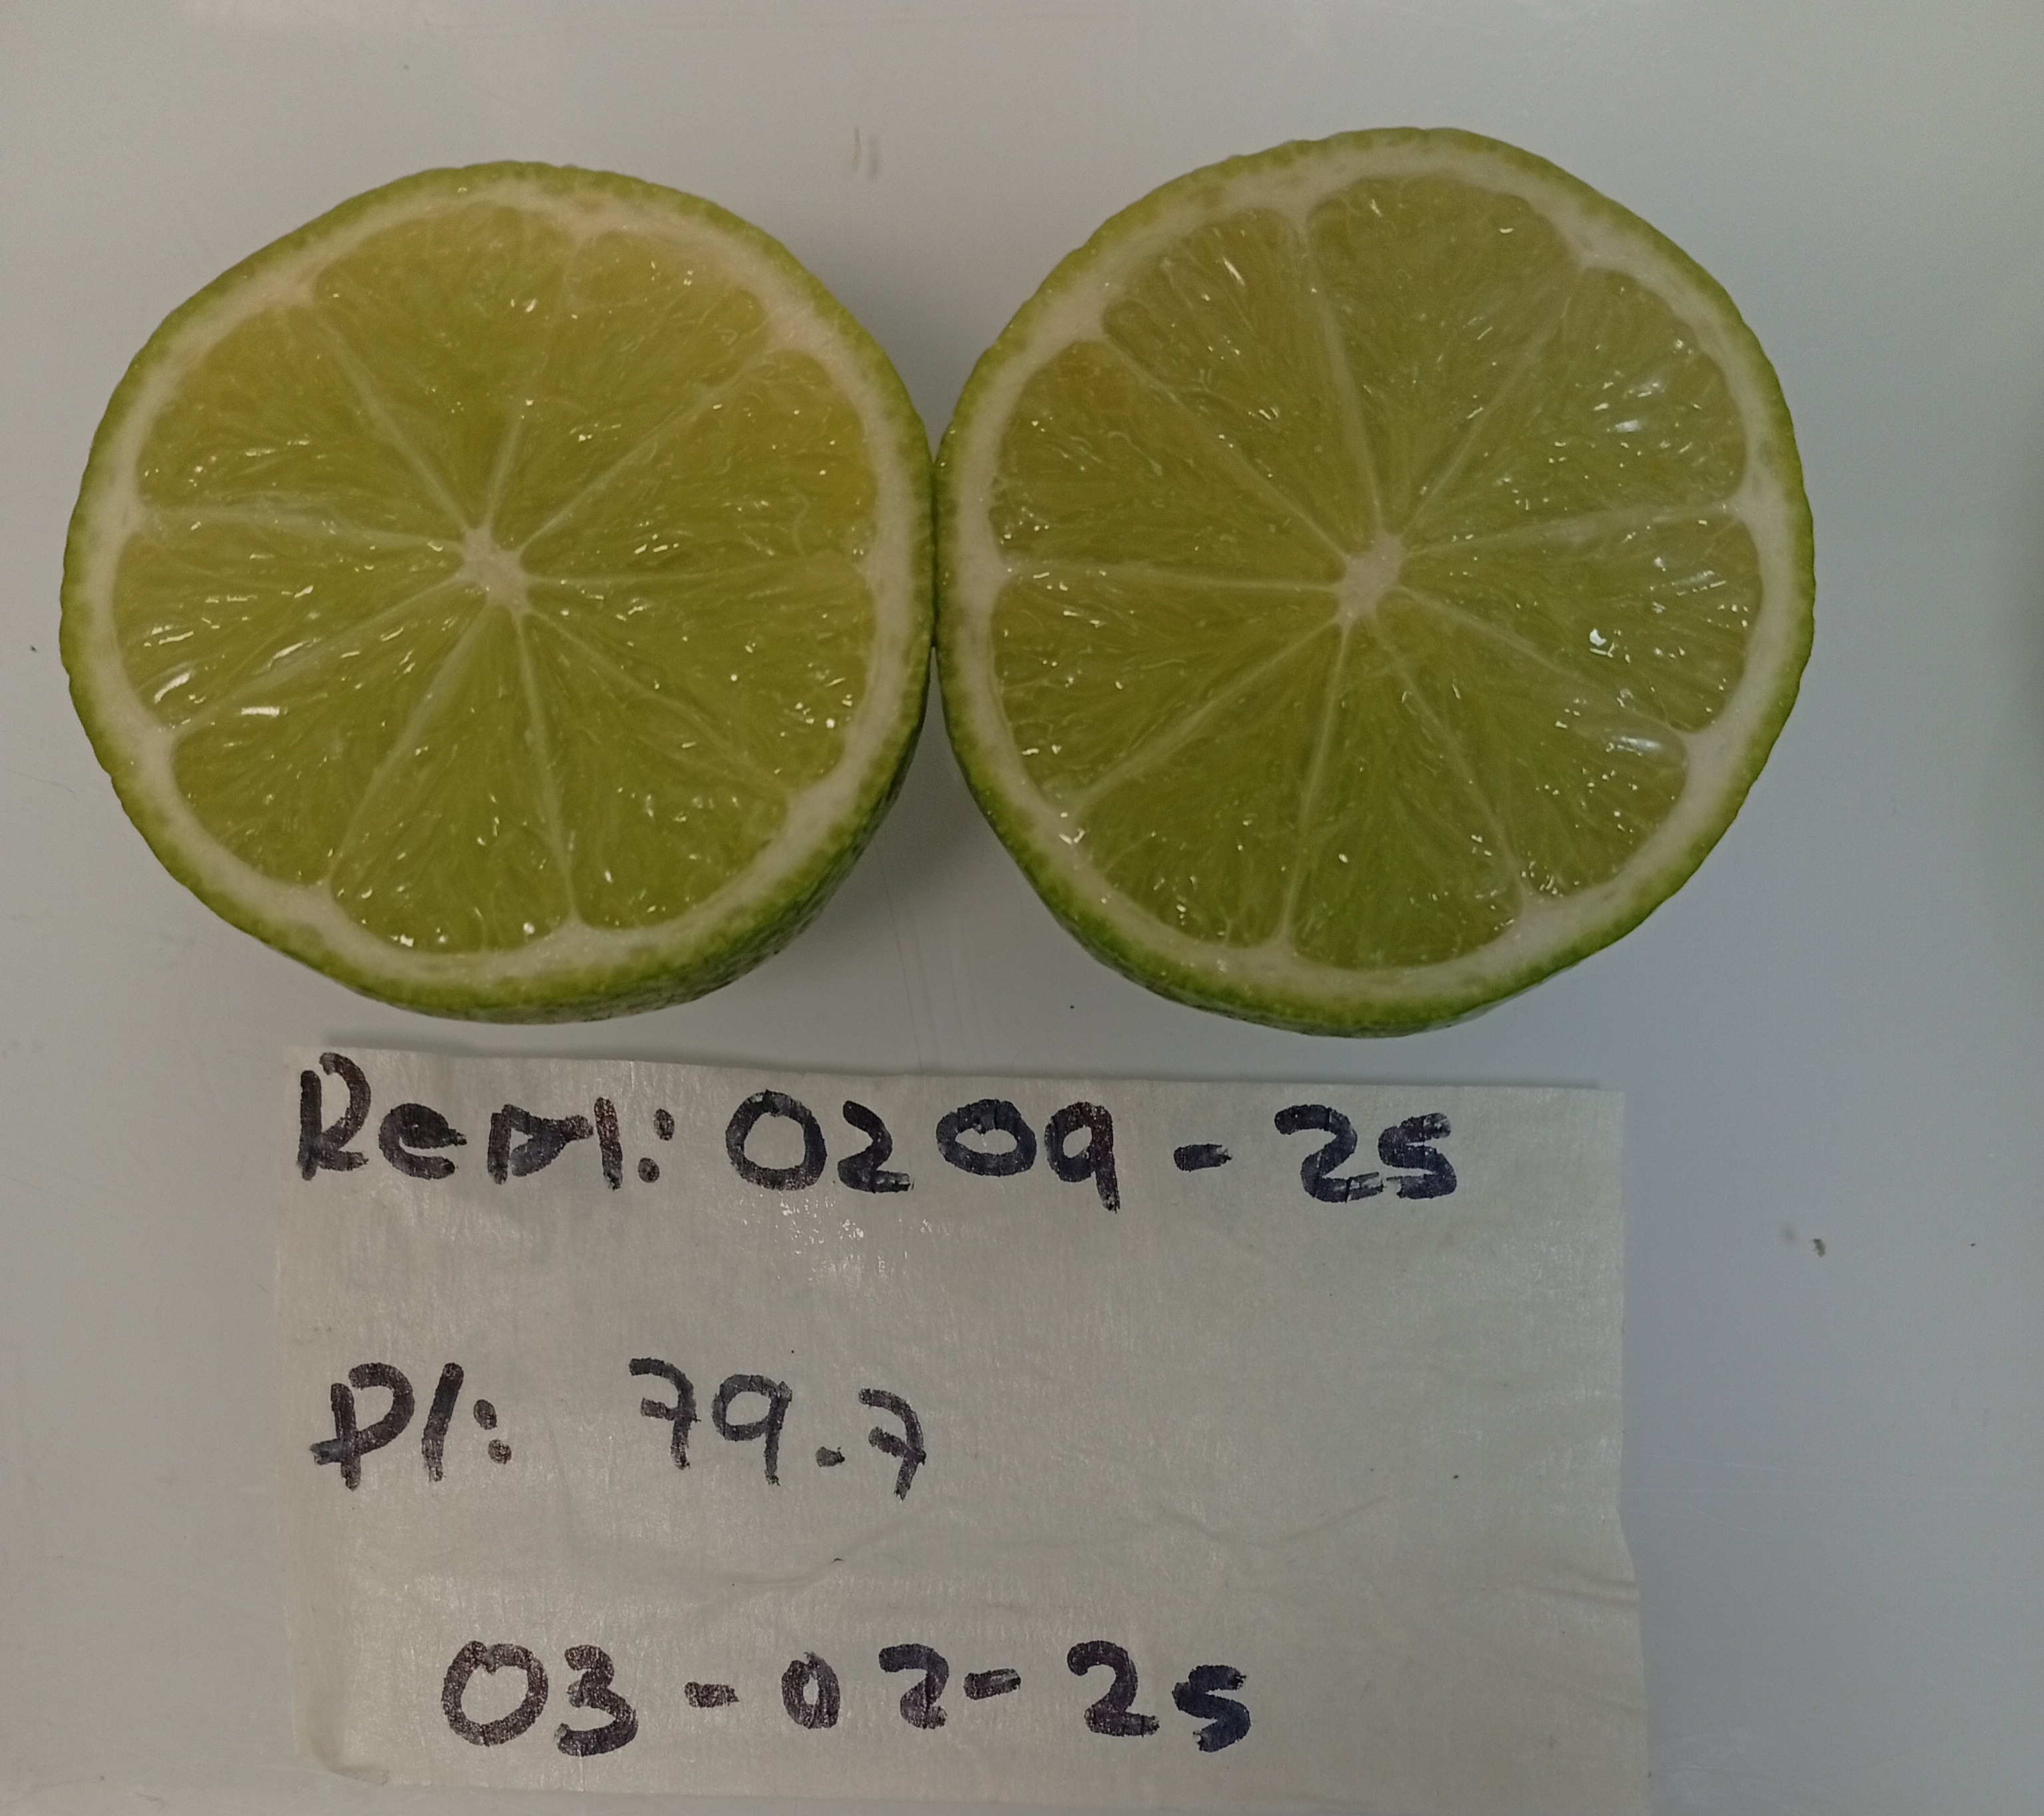 Rem: 0209-25
Pl: 79.7
03-02-25